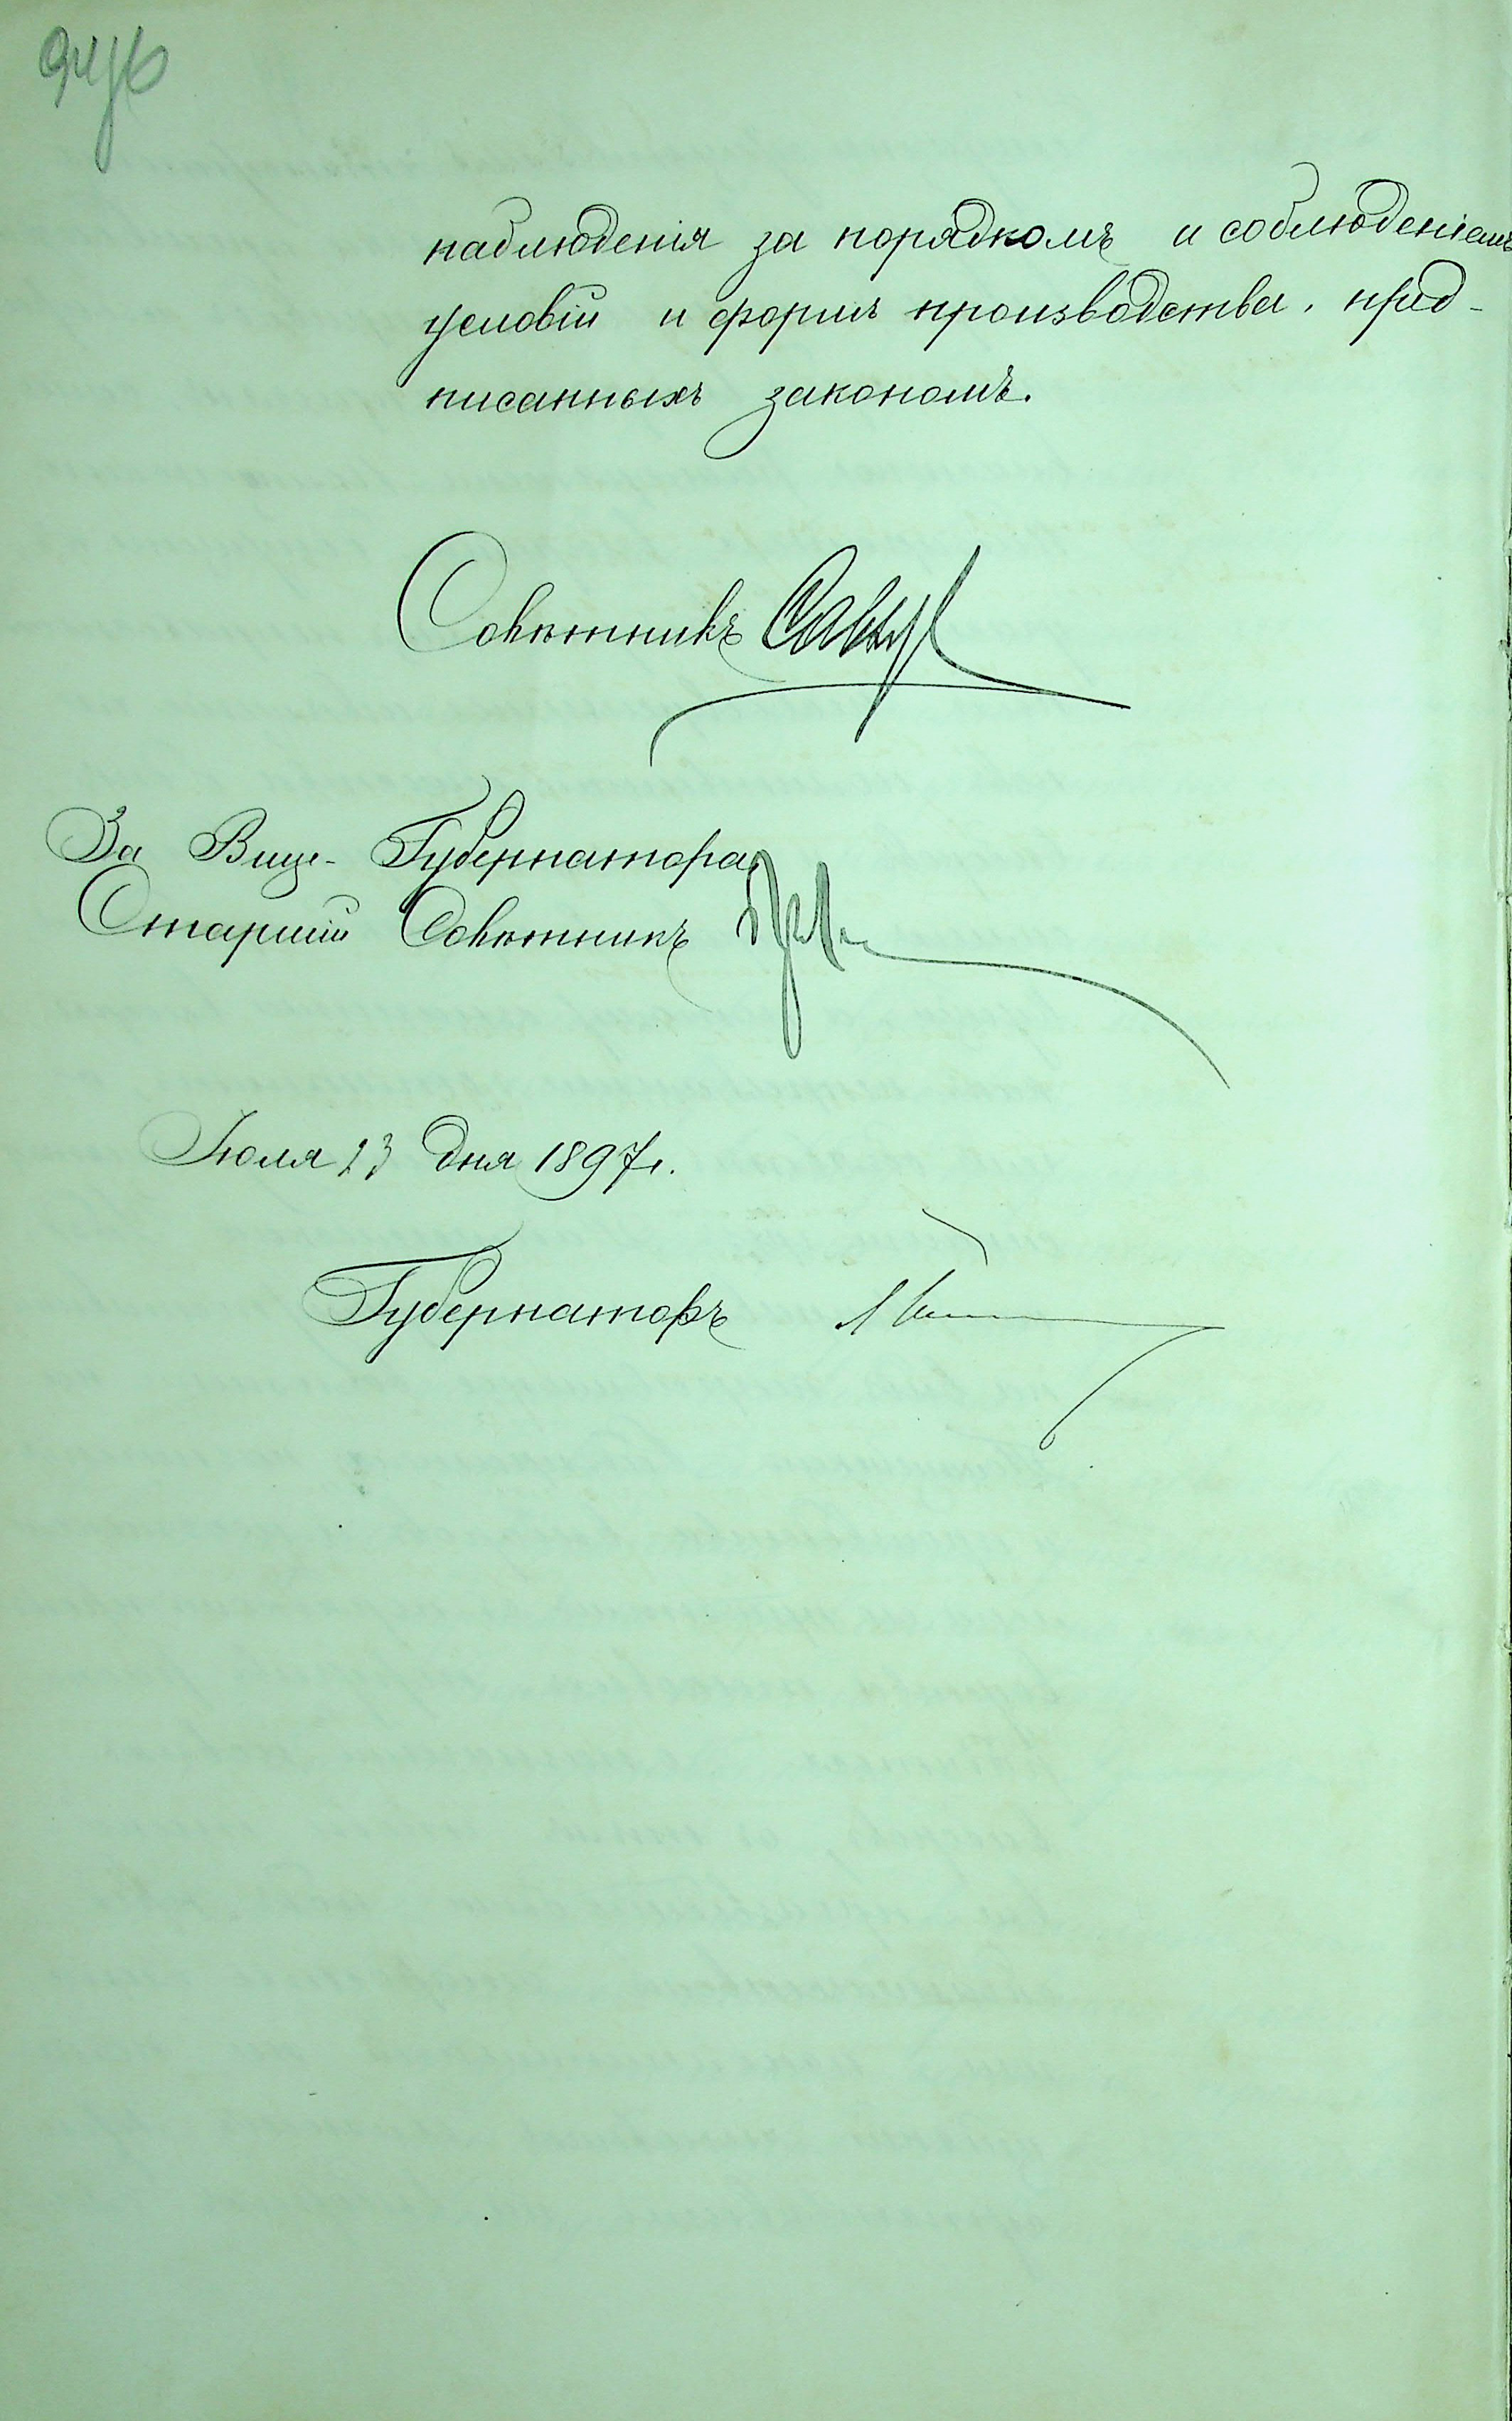 наблюденія за порядкомъ и соблюденіемъ
условій и формъ производства, пред-
писанныхъ закономъ.
Совѣтникъ
За Вице-Губернатора,
Старшій Совѣтникъ
Іюля 23 дня 1897 г.
Губернаторъ